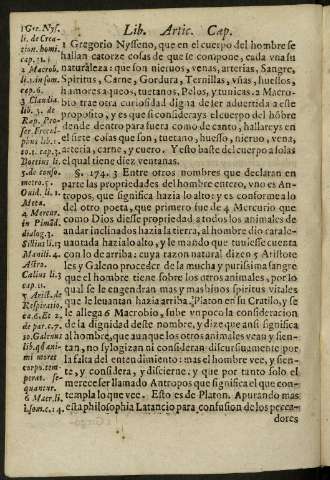 Lib. Artic. Cap.
1 Gregorio Nysseno, que en el cuerpo del hombre se
hallan catorze cosas de que se conpone, cada vna su
naturaleza: que son nieruos, venas, arterias, Sangre,
Spiritus, Carne, Gordura, Ternillas, vñas, huessos,
humores aqueos, tuetanos, Pelos, y tunicas. 2 Macro-
bio trae otra curiosidad digna de ser aduertida a este
proposito, y es que si considerays el cuerpo del hõbre
dende dentro para fuera como de canto, hallareys en
el siete cosas que son, tuetano, huesso, nieruo, vena,
arteria, carne, y cuero. Y esto baste del cuerpo a solas
el qual tiene diez ventanas.
§. 174. 3 Entre otros nombres que declaran en
parte las propriedades del hombre entero, vno es An-
tropos, que significa hazia lo alto: y es conforme a lo
del otro poeta, que primero fue de 4 Mercurio que
como Dios diesse propriedad a todos los animales de
andar inclinados hazia la tierra, al hombre dio cara le-
uantada hazia lo alto, y le mando que tuuiesse cuenta
con lo de arriba: cuya razon natural dizen 5 Aristote
les y Galeno proceder de la mucha y purissima sangre
que el hombre tiene sobre los otros animales, por lo
qual se le engendran mas y mas buenos spiritus vitales
que le leuantan hazia arriba. Platon en su Cratilo, y se
le allega 6 Macrobio, sube vn poco la consideracion
de la dignidad deste nombre, y dize que ansi significa
al hombre, que aunque los otros animales vean y sien-
tan, no sylogizan ni consideran discursiuamente por
la falta del entendimiento: mas el hombre vee, y sien-
te, y considera, y discierne: y que por tanto solo el
merece ser llamado Antropos que significa el que con-
templa lo que vee. Esto es de Platon. Apurando mas
esta philosophia Latancio para confusion de los pecca-
dores
1 Gre. Nys.
li. de Crea-
tion. homi.
cap. 31.
2 Macrob.
li. 1. in som.
cap. 6.
3 Claudia.
lib. 3. de
Rap. Pro-
ser.
10. 1. cap. 3.
Boetius li.
5. de conso.
metro. 5.
Ouid. li. 1.
Meta.
4 Mercur.
in Pimãd.
dialog. 3.
Sillius li. 15
Manili. 4.
Astro.
Calius li. 3
cap. 11.
5 Arist. de
Respiratio.
ca. 6. Et 2.
de par. c. 7.
10. Galenus
lib. q̃d ani-
mi mores
corpo. tem-
perat. se-
quantur.
6 Macr. li.
1. som. c. 14.